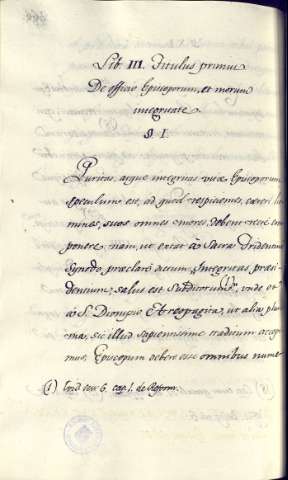 Lib. III. Titulus primus
De officio Episcoporum, et morum
integritate.
§ I.
Puritas, atque integritas vitæ Episcoporum
speculum est, ad quod respicientes, cæteri ho
mines, suos omnes mores debent recte com
ponere: nam, ut extat in Sacra Tridentina
Synodo, præclare actum, Integritas, præsi
dentium, salus est Subditorum (1), unde et
a S. Dionysio Areopagita, ut alias plu
ma, sic illud sapientissime traditum accepi
mus, Episcopum debere esse omnibus nume
(1) Trid. sess. 6. cap. 1. de Reform.